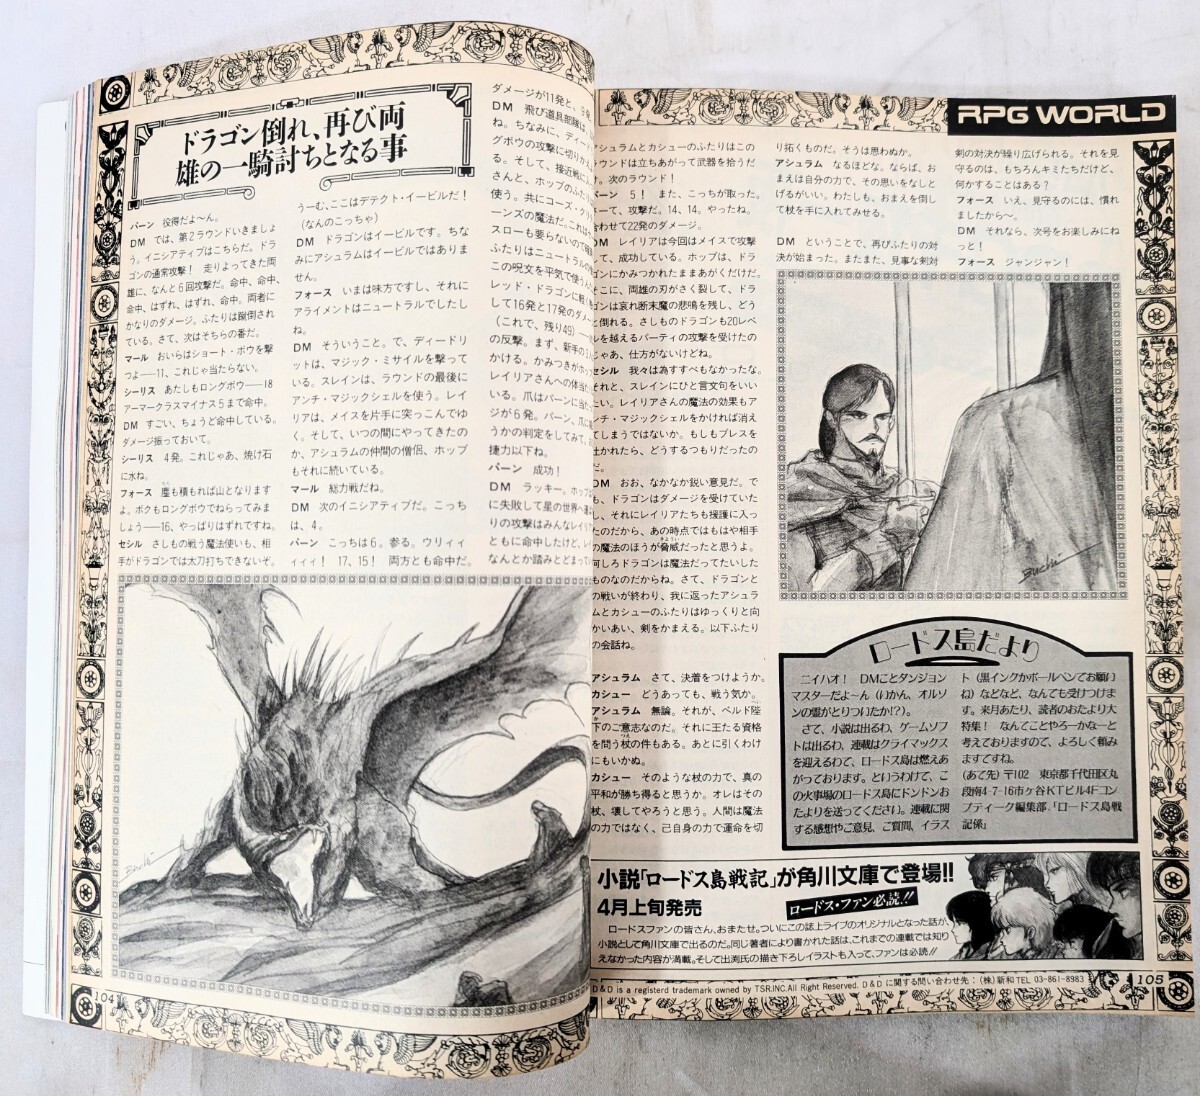 ドラゴン倒れ、再び両
雄の一騎討ちとなる事
パーン 役得だよ〜ん。
DM では、第2ラウンドいきましょ
う。イニシアティブはこちらだ。ドラ
ゴンの通常攻撃! 走りよってきた両
雄に、なんと6回攻撃だ。命中、命中、
命中、はずれ、はずれ、命中。両者に
かなりのダメージ。ふたりは蹴倒され
ている。さて、次はそちらの番だ。
マール おいらはショート・ボウを撃
つよ——11、これじゃ当たらない。
シーリス あたしもロングボウ——18
アーマークラスマイナス5まで命中。
DM すごい、ちょうど命中している。
ダメージ振っておいて。
シーリス 4発。これじゃあ、焼け石
に水ね。
フォース 塵も積もれば山となります
よ。ボクもロングボウでねらってみま
しょう——16、やっぱりはずれですね。
セシル さしもの戦う魔法使いも、相
手がドラゴンでは太刀打ちできないぞ。
うーむ、ここはデテクト・イービルだ!
(なんのこっちゃ)
DM ドラゴンはイービルです。ちな
みにアシュラムはイービルではありま
せん。
フォース いまは味方ですし、それに
アライメントはニュートラルでしたし
ね。
DM そういうこと。で、ディードリ
ットは、マジック・ミサイルを撃って
いる。スレインは、ラウンドの最後に
アンチ・マジックシェルを使う。レイ
リアは、メイスを片手に突っこんでゆ
く。そして、いつの間にやってきたの
か、アシュラムの仲間の僧侶、ホップ
もそれに続いている。
マール 総力戦だね。
DM 次のイニシアティブだ。こっち
は、4。
パーン こっちは6。参る。ウリィィ
ィィィ! 17、15! 両方とも命中だ。
ダメージが11発と、9発
DM 飛び道具部隊は、
ね。ちなみに、ディー
グボウの攻撃に切りか
る。そして、接近戦に
さんと、ホップのふた
使う。共にコーズ・クリ
ーンズの魔法だ。これは
スローも要らないので
ふたりはニュートラルの
この呪文を平気で使うん
レッド・ドラゴンに軽い
して16発と17発のダメー
(これで、残り49)——
の反撃。まず、新手の
かける。かみつきがホッ
レイリアさんへの体当た
いる。爪はパーンに当た
ジが6発。パーン、爪に
うかの判定をしてみて。
捷力以下ね。
パーン 成功!
DM ラッキー。ホップ
に失敗して星の世界へ
りの攻撃はみんなレイリア
ともに命中したけど、レイ
なんとか踏みとどまって
Buchi
104
RPG WORLD
アシュラムとカシューのふたりはこの
ラウンドは立ちあがって武器を拾うだ
け。次のラウンド!
パーン 5! また、こっちが取った。
ーて、攻撃だ。14、14。やったね。
合わせて22発のダメージ。
DM レイリアは今回はメイスで攻撃
して、成功している。ホップは、ドラ
ゴンにかみつかれたままあがくだけだ。
そこに、両雄の刃がさく裂して、ドラ
ゴンは哀れ断末魔の悲鳴を残し、どう
と倒れる。さしものドラゴンも20レベ
ルを越えるパーティの攻撃を受けたの
じゃあ、仕方がないけどね。
セシル 我々は為すすべもなかったな。
それと、スレインにひと言文句をいい
たい。レイリアさんの魔法の効果もア
ンチ・マジックシェルをかければ消え
てしまうではないか。もしもブレスを
吐かれたら、どうするつもりだったの
だ。
DM おお、なかなか鋭い意見だ。で
も、ドラゴンはダメージを受けていた
し、それにレイリアたちも援護に入っ
たのだから、あの時点ではもはや相手
の魔法のほうが脅威だったと思うよ。
何しろドラゴンは魔法だってたいした
ものなのだからね。さて、ドラゴンと
の戦いが終わり、我に返ったアシュラ
ムとカシューのふたりはゆっくりと向
かいあい、剣をかまえる。以下ふたり
の会話ね。
アシュラム さて、決着をつけようか。
カシュー どうあっても、戦う気か。
アシュラム 無論。それが、ベルド陛
下のご意志なのだ。それに王たる資格
を問う杖の件もある。あとに引くわけ
にもいかぬ。
カシュー そのような杖の力で、真の
平和が勝ち得ると思うか。オレはその
杖、壊してやろうと思う。人間は魔法
の力ではなく、己自身の力で運命を切
り拓くものだ。そうは思わぬか。
アシュラム なるほどな。ならば、お
まえは自分の力で、その思いをなしと
げるがいい。わたしも、おまえを倒し
て杖を手に入れてみせる。
DM ということで、再びふたりの対
決は始まった。またまた、見事な剣対
剣の対決が繰り広げられる。それを見
守るのは、もちろんキミたちだけど、
何かすることはある?
フォース いえ、見守るのには、慣れ
ましたから〜。
DM それなら、次号をお楽しみにね
っと!
フォース ジャンジャン!
Buchi
ロードス島だより
ニイハオ! DMことダンジョン
マスターだよ〜ん(いかん、オルソ
ンの霊がとりついたか!?)。
さて、小説は出るわ、ゲームソフ
トは出るわ、連載はクライマックス
を迎えるわで、ロードス島は燃えあ
がっております。というわけで、こ
の火事場のロードス島にドンドンお
たよりを送ってください。連載に関
する感想やご意見、ご質問、イラス
ト(黒インクかボールペンでお願い
ね)などなど、なんでも受けつけま
す。来月あたり、読者のおたより大
特集! なんてことやろーかなーと
考えておりますので、よろしく頼み
ますですね。
(あて先)〒102 東京都千代田区九
段南4-7-16市ヶ谷KTビル4Fコン
プティーク編集部「ロードス島戦
記係」
小説「ロードス島戦記」が角川文庫で登場!!
4月上旬発売
ロードス・ファン必読!!
ロードスファンの皆さん、おまたせ。ついにこの誌上ライブのオリジナルとなった話が、
小説として角川文庫で出るのだ。同じ著者により書かれた話は、これまでの連載では知り
えなかった内容が満載。そして出渕氏の描き下ろしイラストも入って、ファンは必読!!
D&D is a registerd trademark owned by TSR.INC.All Right Reserved. D&Dに関する問い合わせ先:(株)新和TEL 03-861-8983
105